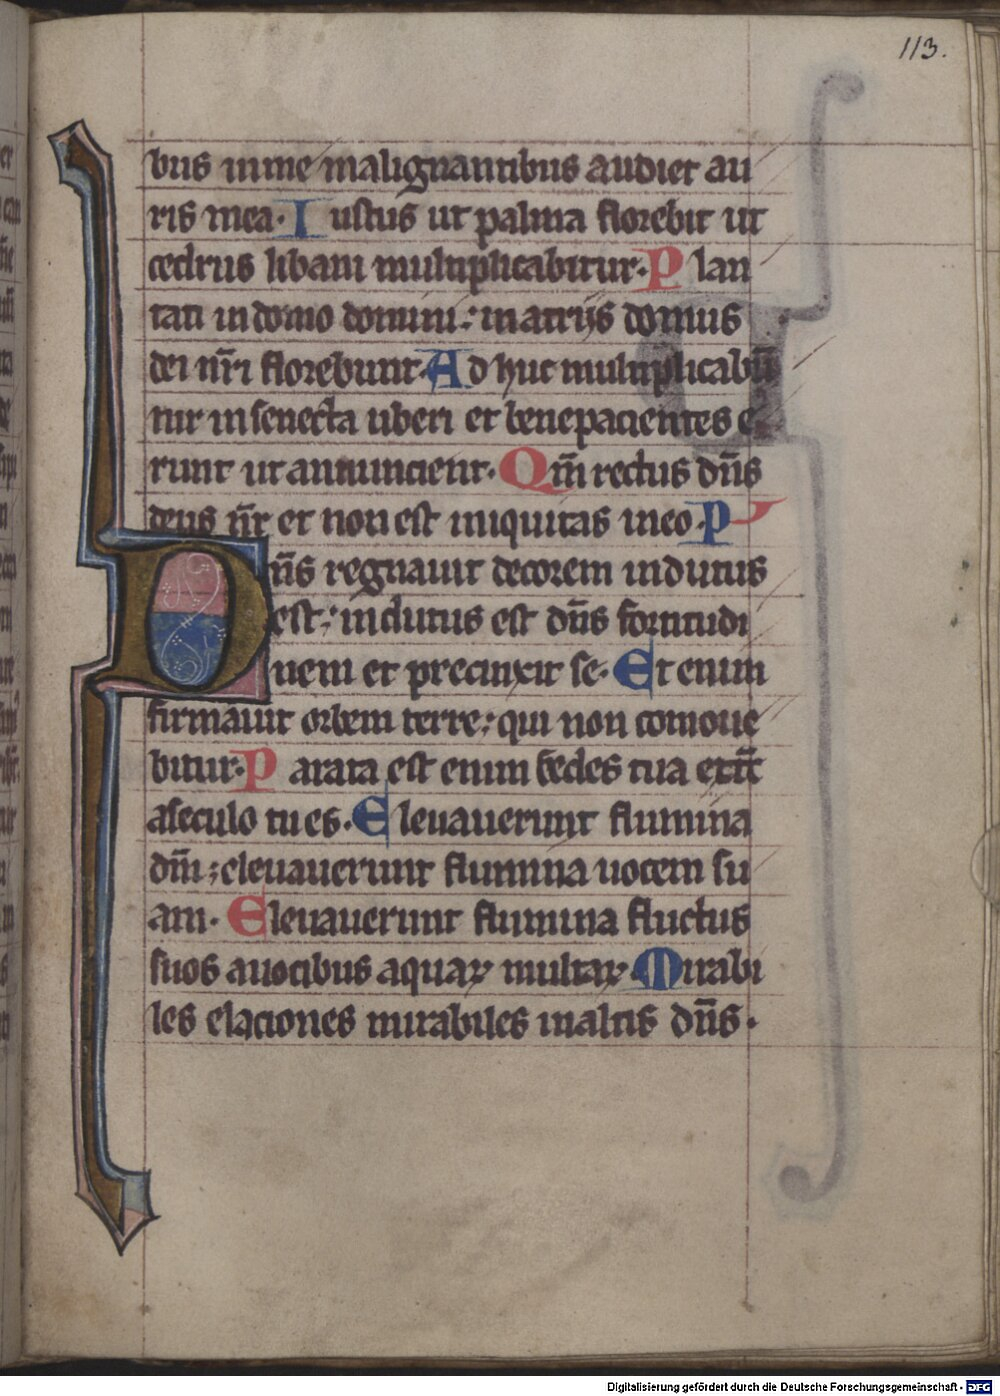 113.
bus in me malignantibus audiet au
ris mea. Iustus ut palma florebit ut
cedrus libani multiplicabitur. Plan
tati in domo domini: in atriis domus
dei nr̄i florebunt. Ad huc multiplicabū
tur in senecta uberi et bene pacientes e
runt ut annuncient. Qm̄ rectus dn̄s
deus nr̄ et non est iniquitas in eo. P
Dn̄s regnauit decorem indutus
est: indutus est dn̄s fortitudi
nem et precinxit se. Et enim
firmauit orbem terre: qui non comoue
bitur. Parata est enim sedes tua
a seculo tu es. Eleuauerunt flumina
dm̄: eleuauerunt flumina uocem su
am. Eleuauerunt flumina fluctus
suos a uocibus aquaꝝ multaꝝ. Mirabi
les elaciones mirabiles in altis dn̄s.
Digitalisierung gefördert durch die Deutsche Forschungsgemeinschaft - DFG